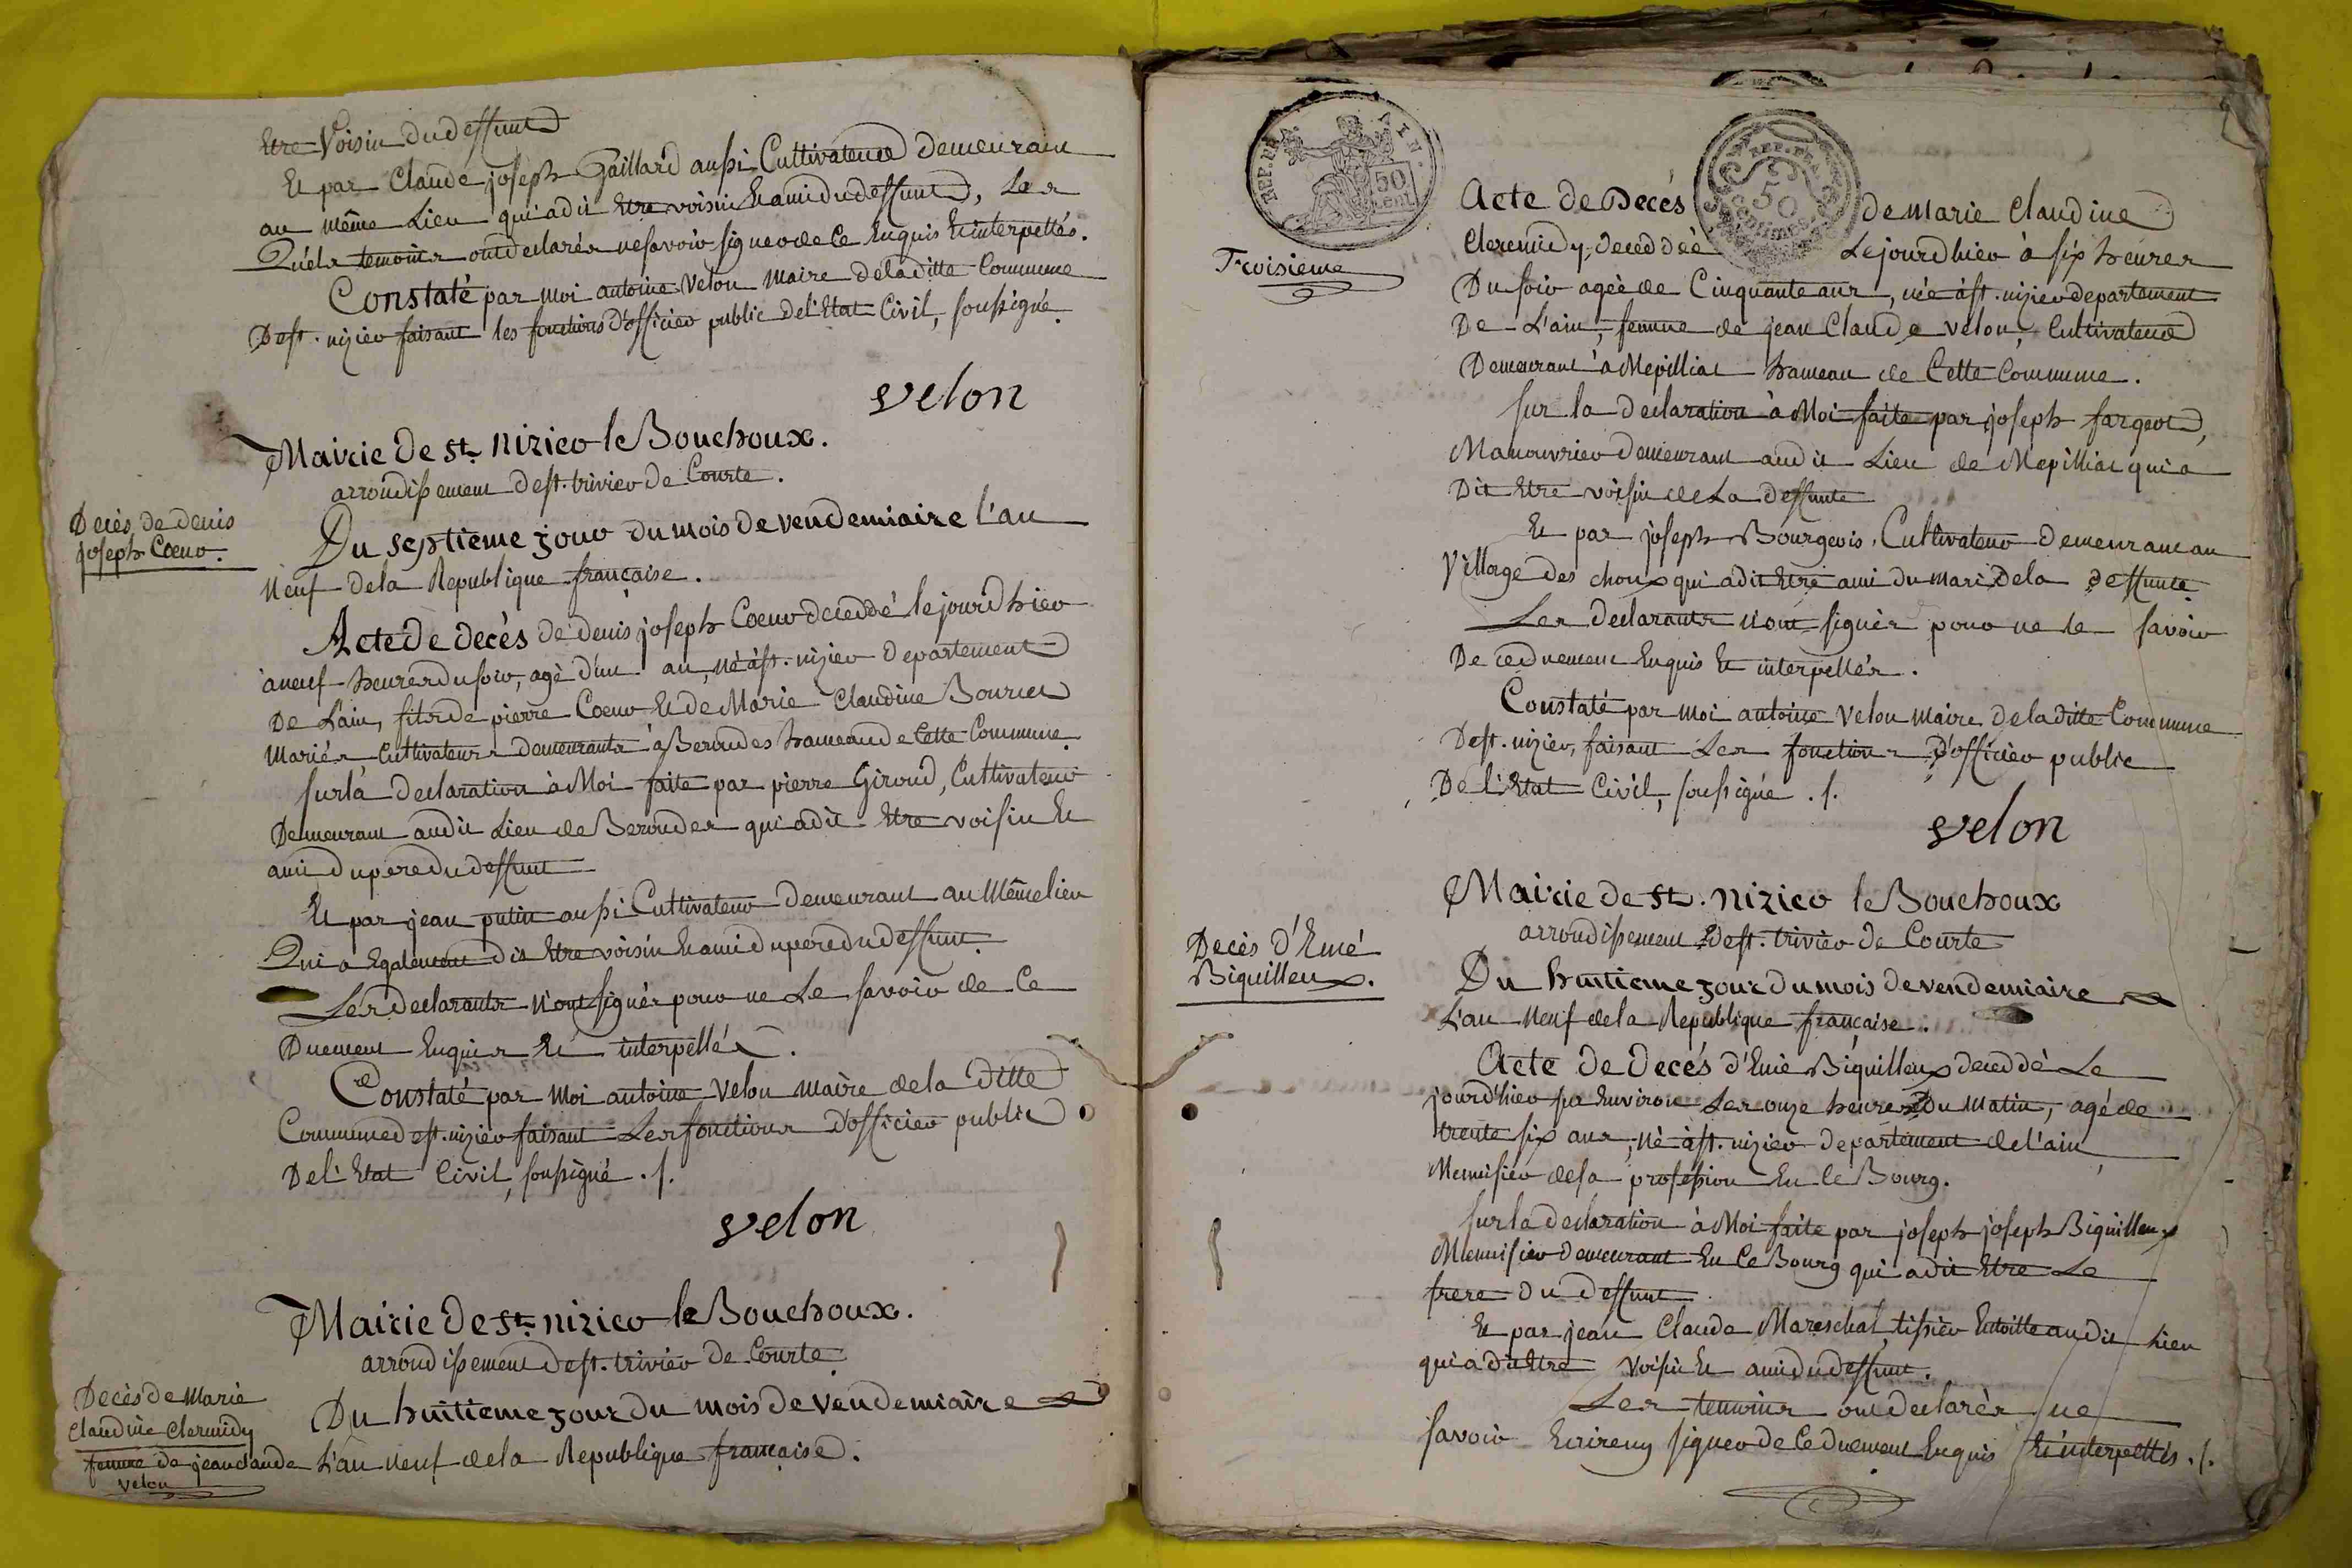 Etre Voisin du deffunt
Et par Claude joseph Gaillard aussi Cultivateur demeurant
au même Lieu qui a dit Etre voisin Et ami du deffunt, Les
Quels temoins ont declarés ne savoir signer de ce Enquis Et interpellés.
Constaté par moi antoine Velon maire de la ditte Commune
De st. nizier faisant les fonctions D'officier public de l'Etat Civil, soussigné.
velon
Mairie de st. nizier le Bouchoux.
arrondissement de st. trivier de Courte.
Decès de denis
joseph Coeur.
Du septieme jour du mois de vendemiaire l'an
Neuf de la Republique française.
Acte de decès de denis joseph Coeur deceddé le jourd hier
à neuf heures du soir, agé d'un an, né à st. nizier Departement
De L'ain, fils de pierre Coeur Et de Marie Claudine Bourcet
Mariés Cultivateurs demeurants à Beroudes hameau de Cette Commune.
sur la declaration à Moi faite par pierre Giroud, Cultivateur
Demeurant audit Lieu de Beroudes qui a dit Etre voisin Et
ami du pere du deffunt
Et par jean putin aussi Cultivateur demeurant au Même lieu
Qui a Egalement dit Etre voisin Et ami du pere du deffunt.
Les declarants N'ont signés pour ne Le savoir de Ce
Duement Enquis Et interpellés.
Constaté par Moi antoine Velon maire de la Ditte
Commune de st. nizier faisant Les fonctions D'officier public
De l'Etat Civil soussigné ./.
velon
Mairie de st. nizier le Bouchoux.
arrondissement de st. trivier de Courte.
Decès de Marie
Claudine Clermidy
femme de jean claude
velon
Du huitieme jour du mois de vendemiaire
L'an neuf de la Republique française.
REP. FRA.
50
cent.
REP. FRA.
50
centimes
Troisieme
Acte de Decés de Marie Claudine
Cleremidy, deceddée Le jourd hier à six heures
Du soir agée de Cinquante ans, née à st. nizier departement
De L'ain, femme de jean Claude velon, Cultivateur
Demeurant à Mepilliat hameau de Cette Commune.
sur la declaration à Moi faite par joseph fargeot,
Manouvrier demeurant audit Lieu de Mepilliat qui a
Dit Etre voisin de La deffunte
Et par joseph Bourgeois, Cultivateur demeurant au
Village des choux qui a dit Etre ami du mari de la deffunte.
Les declarants N'ont signés pour ne le savoir
De ce duement Enquis Et interpellés.
Constaté par moi antoine Velon maire de la ditte Commune
De st. nizier, faisant Les fonctions D'officier public
De l'Etat Civil, soussigné ./.
velon
Mairie de st. nizier le Bouchoux
arrondissement de st. trivier de Courte
Decès d'Emé
Biquilleux.
Du huitieme jour du mois de vendemiaire
L'an Neuf de la Republique française.
Acte de Decés d'Emé Biquilleux deceddé Le
jourd'hier sur Environ Les onze heures Du Matin, agé de
trente six ans, né à st. nizier departement de l'ain
Menuisier de sa profession En Ce Bourg.
sur la declaration à Moi faite par joseph joseph Biquilleux
Menuisier demeurant En Ce Bourg qui a dit Etre Le
frere du deffunt.
Et par jean Claude Mareschal, tissier Entoille audit Lieu
qui a dit Etre Voisin Et ami du deffunt.
Les temoins ont declarés ne
savoir Ecrire ny signer de Ce duement Enquis Et interpellés ./.